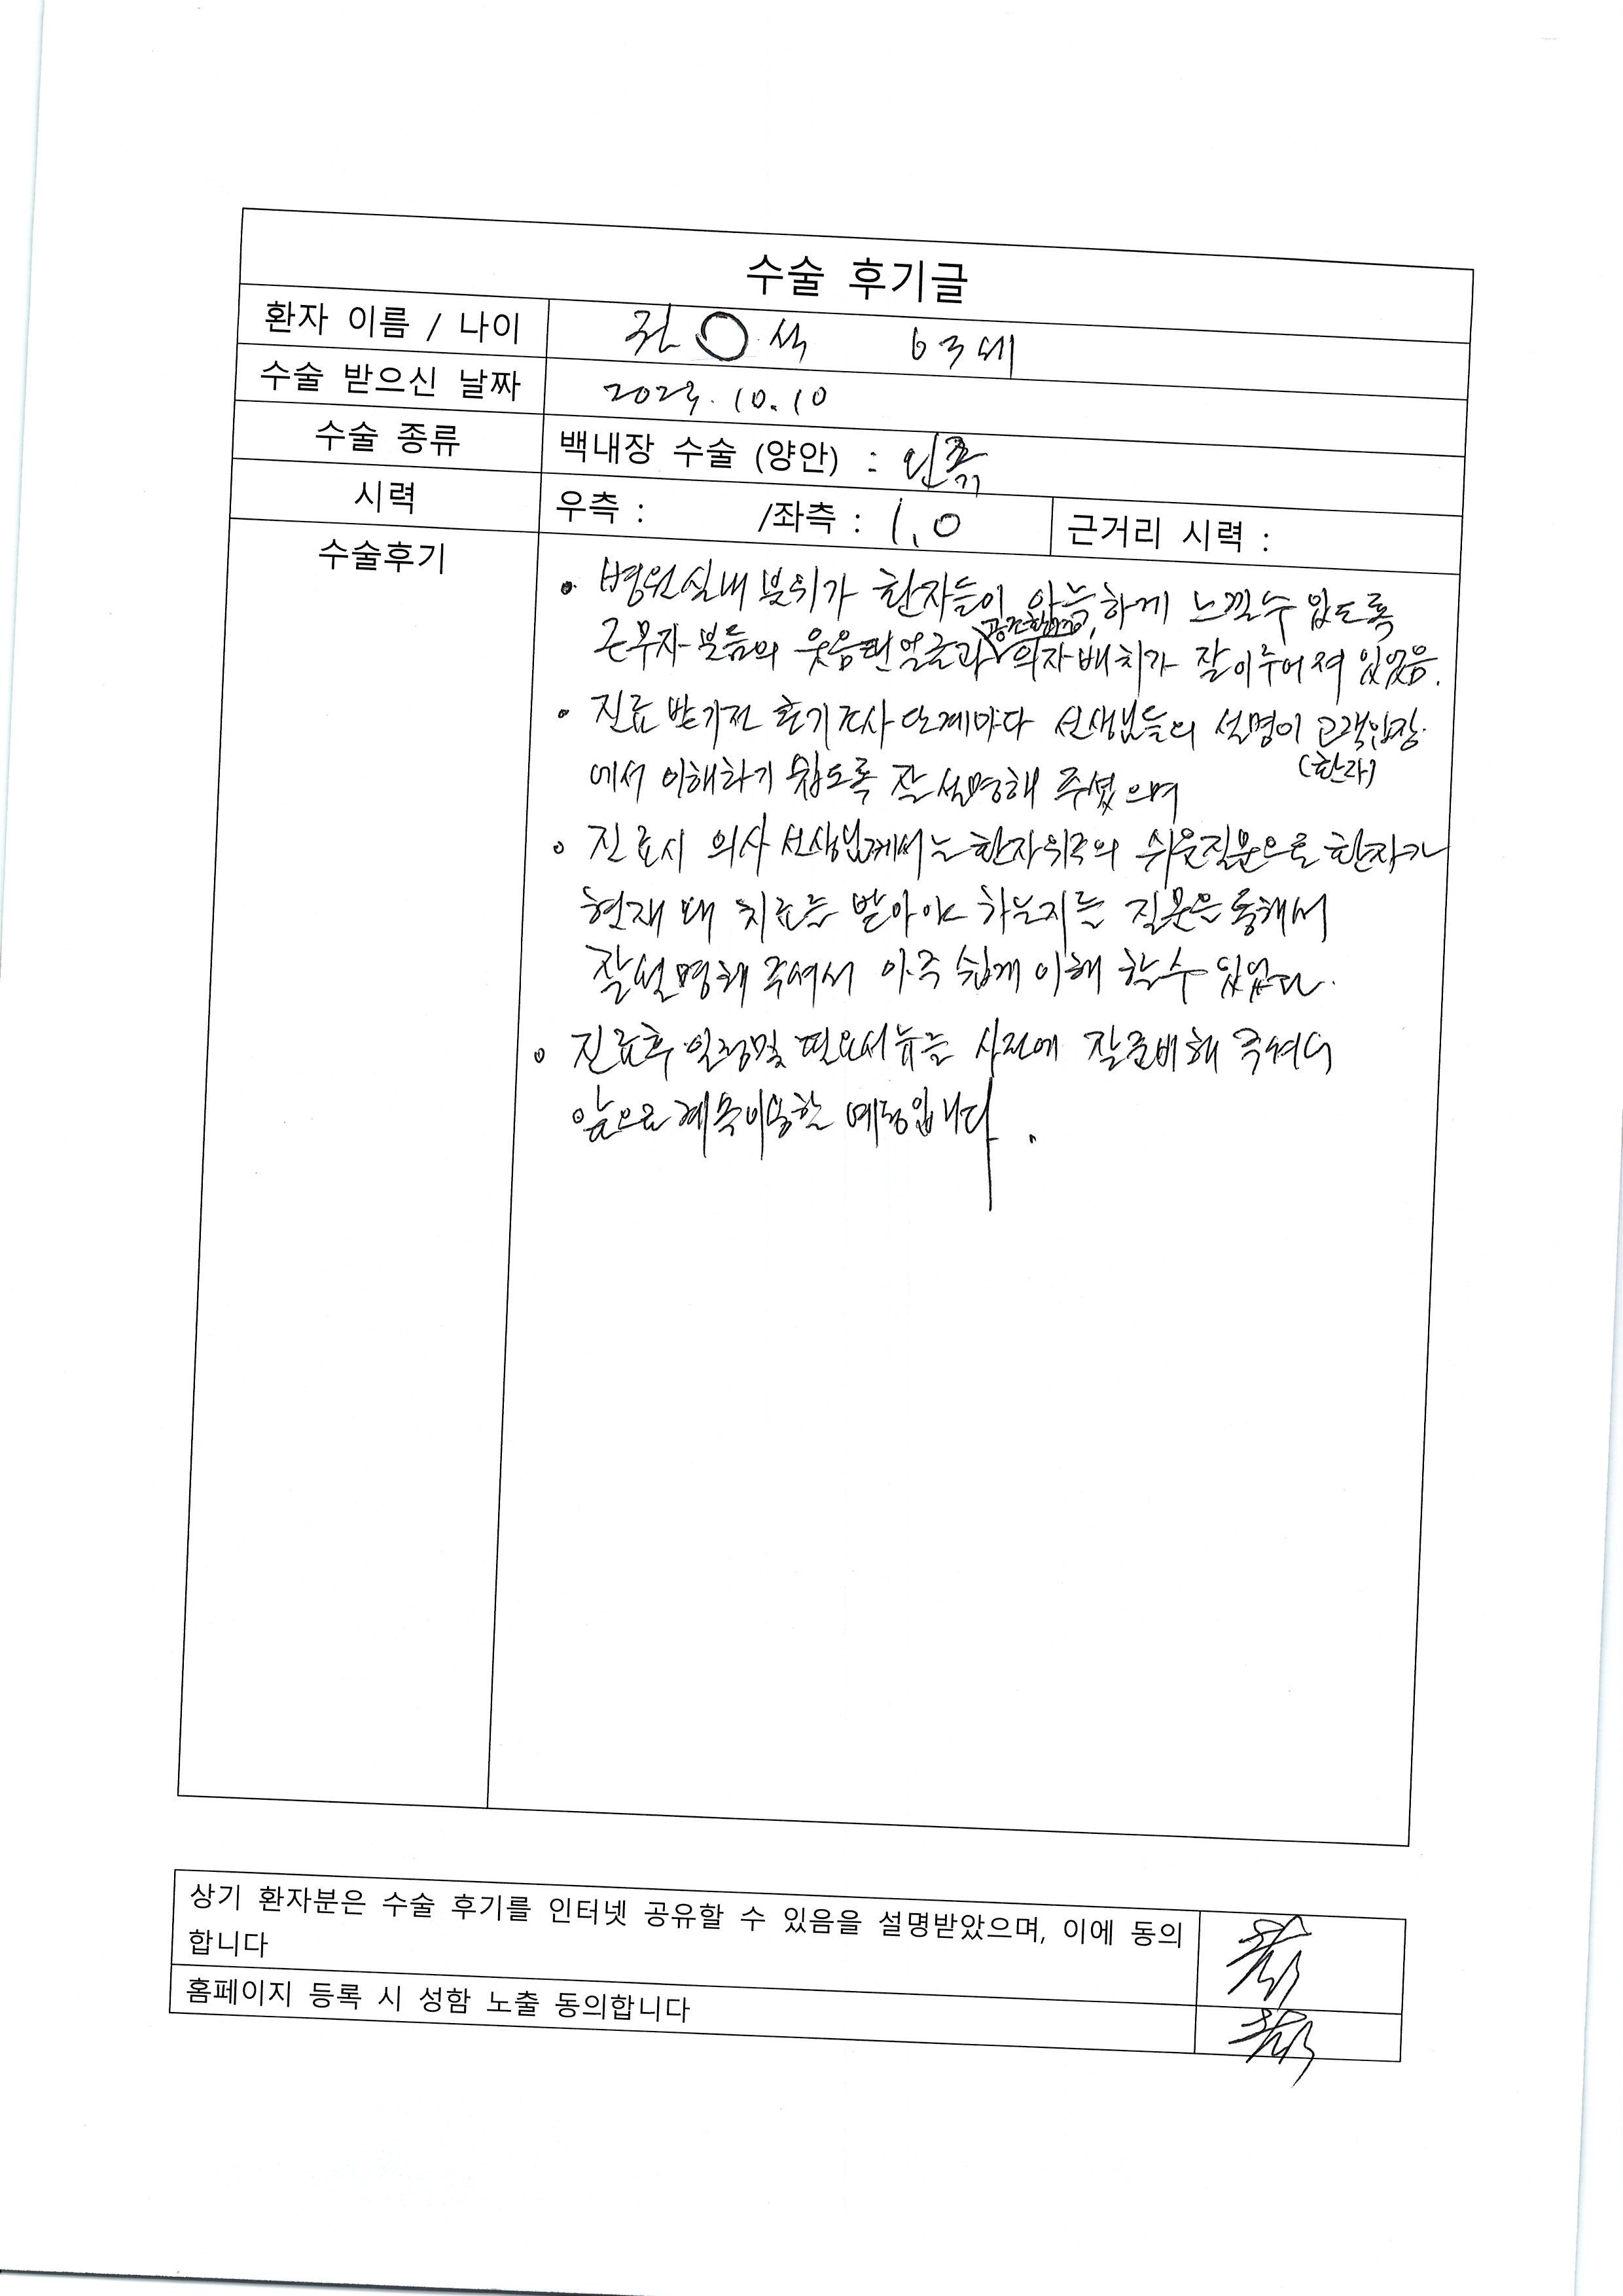 수술 후기글
환자 이름 / 나이 권 ○ 석 63세
수술 받으신 날짜 2023.10.10
수술 종류 백내장 수술 (양안) :
시력 우측 : /좌측 : 1.0 근거리 시력 :
수술후기
• 병원실내 분위가 환자들이 아늑하게 느낄수 있도록
근무자 분들의 웃음띤 얼굴과 의자배치가 잘 이루어져 있었음.
• 진료 받기전 초기조사 단계마다 선생님들의 설명이 고객입장
(환자)
에서 이해하기 쉽도록 잘 설명해 주셨으며
• 진료시 의사 선생님께서는 환자위주의 쉬운질문으로 환자가
현재 왜 치료를 받아야 하는지를 질문을 통해서
잘설명해 주셔서 아주 쉽게 이해 할수 있었다.
• 진료후 일정및 필요서류를 사전에 잘준비해 주셔서
앞으로 계속이용할 예정입니다.
상기 환자분은 수술 후기를 인터넷 공유할 수 있음을 설명받았으며, 이에 동의
합니다
홈페이지 등록 시 성함 노출 동의합니다